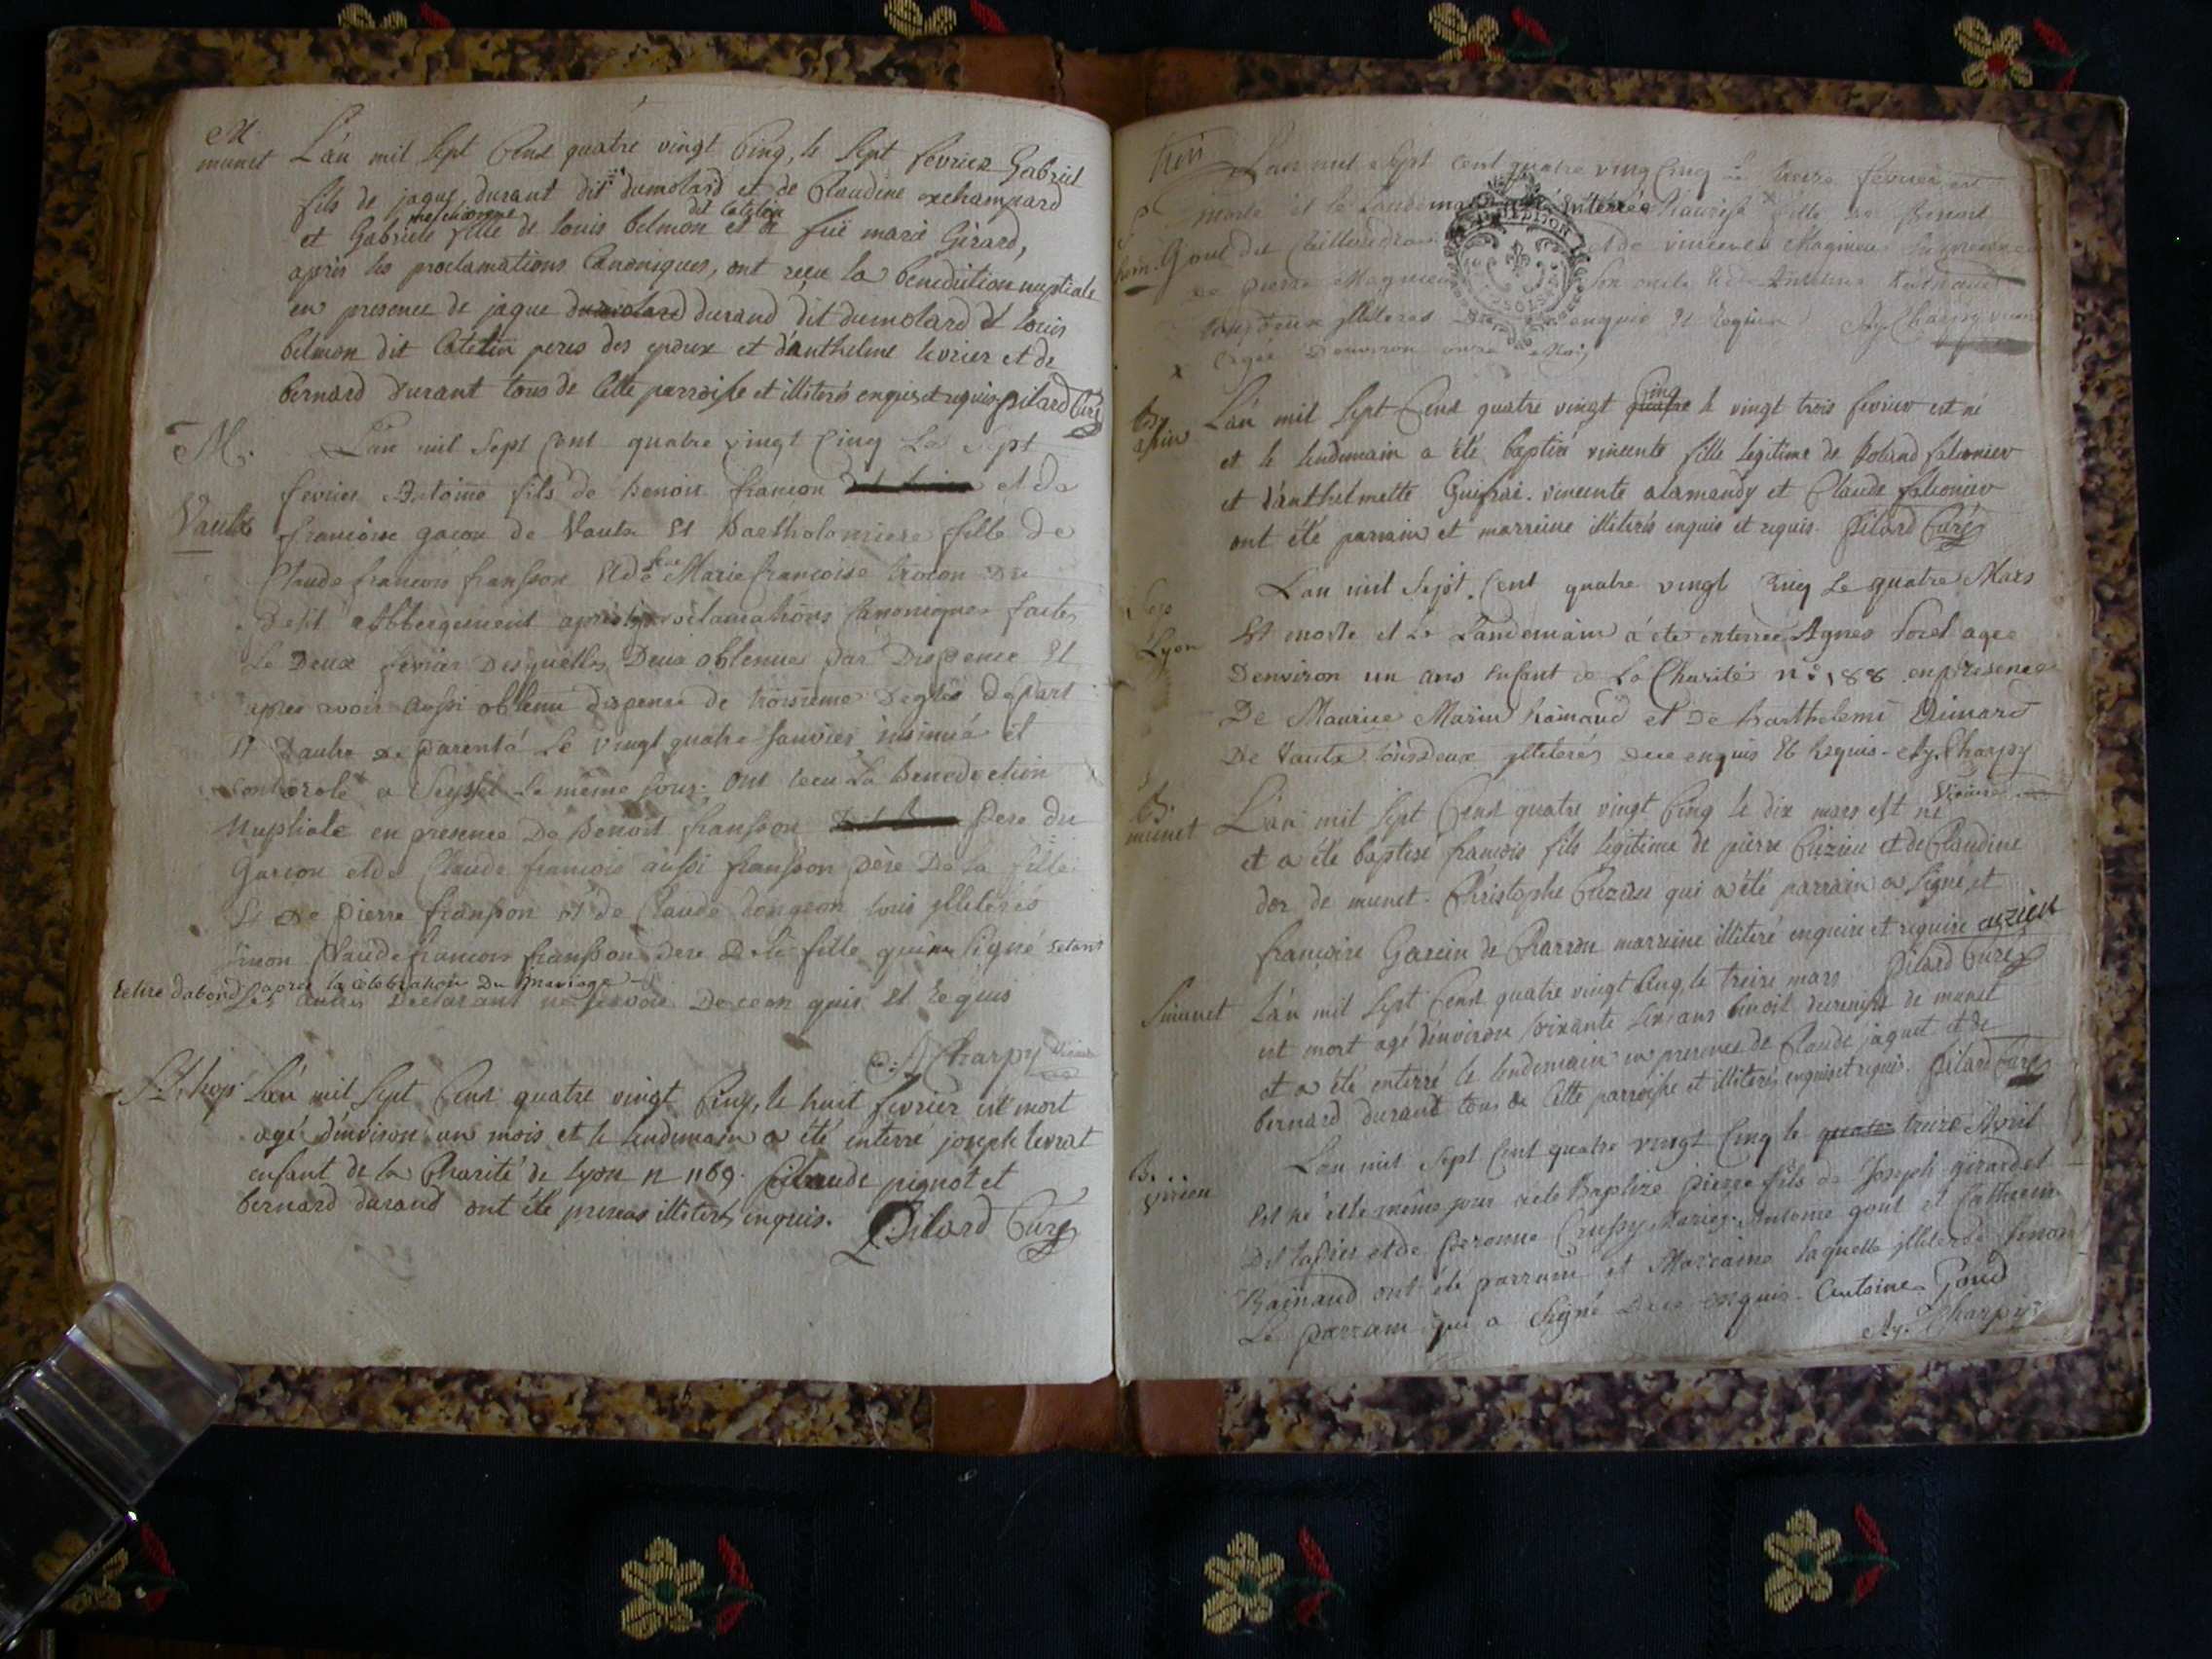 M
munet
L'an mil sept Cent quatre vingt Cinq, le sept fevrier Gabriel
fils de jaque durant dit dumolard et de Claudine
et Gabriele fille de louis belmon dit Catelin et de füe marie Girard,
apres les proclamations Canoniques, ont reçu la benediction nuptiale
en presence de jaque durand dit dumolard et louis
belmon dit Catelin peres des epoux et d'anthelme levrier et de
bernard durant tous de Cette parroisse et illiterés enquis et requis pilard Curé
M.
Vaulx
L'an mil sept Cent quatre vingt Cinq Le sept
fevrier Antoine fils de benoit françon et de
françoise gacon de Vaulx Et Barthelomiere fille de
Claude françois fransson Et de feue Marie françoise trocon du
Petit Abbergement apres les proclamations Canoniques faites
Le Deux fevrier Desquelles Deux obtenues par Dispense Et
apres avoir aussi obtenu dispense de troisieme Degrés De part
Et Dautre de parenté Le vingt quatre Janvier insinué et
Controlé a Seyssel Le même jour. Ont recu La benediction
Nuptiale en presence De Benoit fransson Pere du
Garcon et de Claude françois aussi fransson père De La fille
Et De pierre fransson Et de Claude dongeon tous illeterés
sinon Claude françois fransson pere De la fille qui a signé setant
retiré dabord apres la célébration Du Mariage
Les autres Declarant ne scavoir De ce en quis Et requis
Charpy Vicaire
L'an mil sept Cent quatre vingt Cinq, le huit fevrier est mort
agé d'environ un mois et le lendemain a été enterré joseph levrat
enfant de la Charité de lyon n 1169. Claude pignot et
bernard durand ont été presens illiterés enquis. Pilard Curé
L'an mil sept cent quatre ving Cinq Le treize fevrier est
morte et le Landemain été Enterrée fille de Benoit
Goul et de vincente Magnieu
De pierre Magnieu son oncle Et de Anthelme
tous deux illiteres enquis Et requis Ay. Charpy vicaire
agée Denviron onze Mois
L'an mil sept Cent quatre vingt Cinq le vingt trois fevrier est né
et le lendemain a été baptisé vincente fille legitime de Roland falconier
et d'anthelmette Guifrai. vincente alamandy et Claude falconier
ont été parrain et marreine illiterés enquis et requis. Pilard Curé
Sep
Lyon
L'an mil Sept. Cent quatre vingt Cinq Le quatre Mars
Est morte et Le Landemain a été enterrée Agnes Sorel agée
Denviron un ans Enfant de La Charité n° 188 en présence
De Maurice Marin Rainaud et De Barthelemi
De Vaulx tous deux illeterés de ce enquis Et Requis. Ay. Charpy
Vicaire
B.
munet
L'an mil sept Cent quatre vingt Cinq le dix mars est né
et a été baptisé françois fils legitime de pierre Cuzieu et de Claudine
dor de munet. Christophe Cuzieu qui a été parrain a signé, et
françoise Garcin de Charron marreine illiteré enquise et requise cuzieu
Pilard Curé
S munet
L'an mil sept Cent quatre vingt Cinq, le treize mars
est mort agé d'environ soixante six ans benoit de munet
et a été enterré le lendemain en presence de Claude jaquet et de
bernard durant tous de Cette parroisse et illiterés enquis et requis. Pilard Curé
B.
virieu
L'an mil sept Cent quatre vingt Cinq le treize Avril
Est né et le même jour a été Baptizé pierre fils de Joseph girardet
Dit et de Peronne Antoine goul et Catherine
Rainaud ont été parrain et Marraine laquelle illeterée sinon
Le parrain qui a signé De ce enquis. Antoine Goud
Ay. Charpy